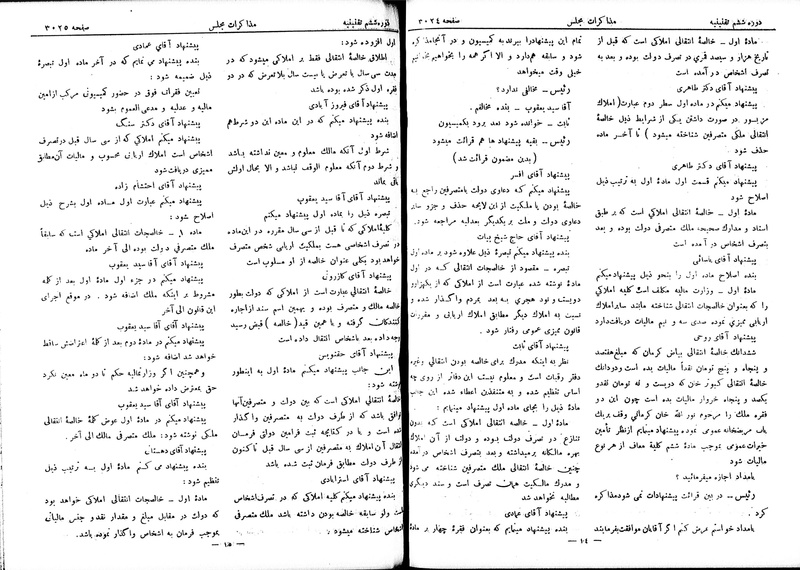 دوره ششم تقنینیه
مذاکرات مجلس
صفحه ۳۰۲۴
مادهٔ اول – خالصهٔ انتقالی املاکی است که قبل از
تاریخ هزار و سیصد قمری در تصرف دولت بوده و بعد به
تصرف اشخاص در آمده است
پیشنهاد آقای دکتر طاهری
پیشنهاد میکنم در ماده اول سطر دوم عبارت (املاک
مزبور در صورت داشتن یکی از شرایط ذیل خالصهٔ
انتقالی ملکی متصرفین شناخته میشود) تا آخر ماده
حذف شود
پیشنهاد آقای دکتر طاهری
پیشنهاد میکنم قسمت اول ماده اول به ترتیب ذیل
اصلاح شود
مادهٔ اول – خالصهٔ انتقالی املاکی است که بر طبق
اسناد و مدارک صحیحه ملک متصرفی دولت بوده و بعد
بتصرف اشخاص در آمده است
پیشنهاد آقای یاسائی
بنده اصلاح ماده اول را بنحو ذیل پیشنهاد میکنم
مادهٔ اول – وزارت مالیه مکلف است کلیه املاکی
را که بعنوان خالصجات انتقالی شناخته مانند سایر املاک
اربابی ممیزی نموده صدی سه و نیم مالیات دریافت دارد
پیشنهاد آقای روحی
ششدانک خالصهٔ انتقالی بیاض کرمان که مبلغ هفتصد
و پنجاه و پنج تومان نقداً مالیات بده است و دودانک
خالصهٔ انتقالی کبوتر خان که دویست و نه تومان نقدو
یکصد و پنجاه خروار مالیات بده است چون این دو
فقره ملک را مرحوم نور الله خان کرمانی وقف بر یک
باب مریضخانه عمومی نموده پیشنهاد مینمایم از نظر تأمین
خیرات عمومی بموجب مادهٔ ششم کلیهٔ معاف از هر نوع
مالیات شود
بامداد اجازه میفرمائید؟
رئیس – در بین قرائت پیشنهادات نمی شود مذاکره
کرد.
بامداد خواستم عرض کنم اگر آقایان موافقت بفرمایند
تمام این پیشنهادها را ببرند به کمیسیون و در آنجا مذاکره
شود و سابقه هم دارد و الا اگر همه را بخواهیم بخوانیم
خیلی وقت میخواهد
رئیس – مخالفی ندارد؟
آقا سید یعقوب – بنده مخالفم.
ثابت – خوانده شود بعد برود بکمیسیون
رئیس – بقیه پیشنهاد ها هم قرائت میشود
(بدین مضمون قرائت شد)
پیشنهاد آقای افسر
پیشنهاد میکنم که دعاوی دولت با متصرفین راجع به
خالصه بودن یا ملکیت از این لایحه حذف و جزو سایر
دعاوی دولت و ملت بر یکدیگر بعدلیه مراجعه شود.
پیشنهاد آقای حاج شیخ بیات
بنده پیشنهاد میکنم تبصرهٔ ذیل علاوه شود بر ماده اول
تبصره – مقصود از خالصجات انتقالی که در اول
ماده نوشته شده عبارت است از املاکی که از یکهزار و
دویست و نود هجری به بعد بمردم واگذار شده و
نسبت به املاک دیگر مطابق املاک اربابی و مقررات
قانون ممیزی عمومی رفتار شود.
پیشنهاد آقای ثابت
نظر به اینکه مدرک برای خالصه بودن انتقالی وغیره
دفتر رقبات است و معلوم نیست این دفاتر از روی چه
اساس تنظیم شده و به متنفذین اعطاء شده این جانب
مادهٔ ذیل را بجای ماده اول پیشنهاد مینمایم:
مادهٔ اول – خالصه انتقالی املاکی است که بدون
تنازع در تصرف دولت بوده و دولت از آن املاک
بهره مالکانه بر میداشته و بعد بتصرف اشخاص در آمده
چنین خالصه انتقالی ملک متصرفین شناخته می شود
و مدرک مالکیت همان تصرف است و سند دیگری
مطالبه نخواهد شد
پیشنهاد آقای عمادی
بنده پیشنهاد مینمایم که بعنوان فقرهٔ چهار بر مادهٔ
– ۱۴ –
دوره ششم تقنینیه
مذاکرات مجلس
صفحه ۳۰۲۵
اول افزوده شود:
اطلاق خالصهٔ انتقالی فقط بر املاکی میشود که در
مدت سی سال یا تعرض یا بیست سال بلا تعرض که در دو
فقره اول ذکر شده بوده باشد
پیشنهاد آقای فیروز آبادی
بنده پیشنهاد میکنم که در این ماده این دو شرط هم
اضافه شود
شرط اول آنکه مالک معلوم و معین نداشته باشد
و شرط دوم آنکه معلوم الوقف نباشد و الا بحال اولش
باقی بماند
پیشنهاد آقای آقا سید یعقوب
تبصره ذیل را بماده اول پیشنهاد میکنم
کلیهٔ املاکی که تا قبل از سی سال مقرره در این ماده
در تصرف اشخاصی هست بملکیت اربابی شخص متصرف
خواهد بود و بکلی عنوان خالصه از او مسلوب است
پیشنهاد آقای کازرونی
خالصهٔ انتقالی عبارت است از املاکی که دولت بطور
خالصه مالک و متصرف بوده و بهمین اسم سند از اجاره
کنندگان گرفته و یا همین قید (خالصه) قبض رسید
وجه داده بعد باشخاص انتقال داده است
پیشنهاد آقای حقنویس
این جانب پیشنهاد میکنم مادهٔ اول به اینطور
نوشته شود:
خالصهٔ انتقالی املاکی است که بین دولت و متصرفین آنها
توافق باشد که از طرف دولت به متصرفین واگذار
شده است و یا در کتابچه ثبت فرامین دولتی فرمان
انتقال آن املاک به متصرفین از سی سال قبل تا کنون
از طرف دولت مطابق فرمان ثبت شده باشد
پیشنهاد آقای استرابادی
بنده پیشنهاد میکنم کلیه املاکی که در تصرف اشخاص
است ولو سابقه خالصه بودن داشته باشد ملک متصرفی
اشخاص شناخته میشود
پیشنهاد آقای عمادی
بنده پیشنهاد می نمایم که در آخر ماده اول تبصرهٔ
ذیل ضمیمه شود:
تعیین فقرات فوق در حضور کمیسیونی مرکب از امین
مالیه و عدلیه و مدعی العموم بشود
پیشنهاد آقای دکتر سنگ
پیشنهاد میکنم املاکی که از سی سال قبل در تصرف
اشخاص است املاک اربابی محسوب و مالیات آن مطابق
ممیزی دریافت شود
پیشنهاد آقای احتشام زاده
پیشنهاد میکنم عبارت اول ماده اول بشرح ذیل
اصلاح شود:
ماده ۱ – خالصجات انتقالی املاکی است که سابقاً
ملک متصرفی دولت بوده الی آخر ماده
پیشنهاد آقای آقا سید یعقوب
پیشنهاد میکنم در جزء اول مادهٔ اول بعد از کلمه
مشروط بر اینکه ملک اضافه شود. در موقع اجرای
این قانون الی آخر
پیشنهاد آقای آقا سید یعقوب
پیشنهاد میکنم در مادهٔ دوم بعد از کلمهٔ اعتراضش ساقط
خواهد شد اضافه شود:
و همچنین اگر وزارتمالیه حکم تا دو ماه معین نکرد
حق بمعترض داده خواهد شد
پیشنهاد آقای آقا سید یعقوب
پیشنهاد میکنم در مادهٔ اول عوض کلمهٔ خالصهٔ انتقالی
ملکی نوشته شود: ملک متصرفی مالک الی آخر.
پیشنهاد آقای دهستانی
بنده پیشنهاد می کنم مادهٔ اول به ترتیب ذیل
تنظیم شود:
مادهٔ اول – خالصجات انتقالی املاکی خواهد بود
که دولت در مقابل مبلغ و مقدار نقد و جنس مالیاتی
بموجب فرمان به اشخاص واگذار نموده باشد.
– ۱۵ –